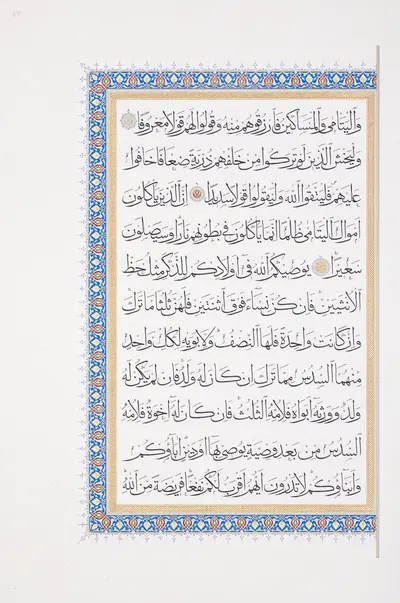 وَاليَتامى وَالمَساكينُ فَارزُقوهُم مِنهُ وَقولوا لَهُم قَولًا مَعروفًا
وَليَخشَ الَّذينَ لَو تَرَكوا مِن خَلفِهِم ذُرِّيَّةً ضِعافًا خافوا
عَلَيهِم فَليَتَّقُوا اللَّهَ وَليَقولوا قَولًا سَديدًا إِنَّ الَّذينَ يَأكُلونَ
أَموالَ اليَتامى ظُلمًا إِنَّما يَأكُلونَ في بُطونِهِم نارًا وَسَيَصلَونَ
سَعيرًا يوصيكُمُ اللَّهُ في أَولادِكُم لِلذَّكَرِ مِثلُ حَظِّ
الأُنثَيَينِ فَإِن كُنَّ نِساءً فَوقَ اثنَتَينِ فَلَهُنَّ ثُلُثا ما تَرَكَ
وَإِن كانَت واحِدَةً فَلَهَا النِّصفُ وَلِأَبَوَيهِ لِكُلِّ واحِدٍ
مِنهُمَا السُّدُسُ مِمّا تَرَكَ إِن كانَ لَهُ وَلَدٌ فَإِن لَم يَكُن لَهُ
وَلَدٌ وَوَرِثَهُ أَبَواهُ فَلِأُمِّهِ الثُّلُثُ فَإِن كانَ لَهُ إِخوَةٌ فَلِأُمِّهِ
السُّدُسُ مِن بَعدِ وَصِيَّةٍ يوصي بِها أَو دَينٍ آباؤُكُم
وَأَبناؤُكُم لا تَدرونَ أَيُّهُم أَقرَبُ لَكُم نَفعًا فَريضَةً مِنَ اللَّهِ